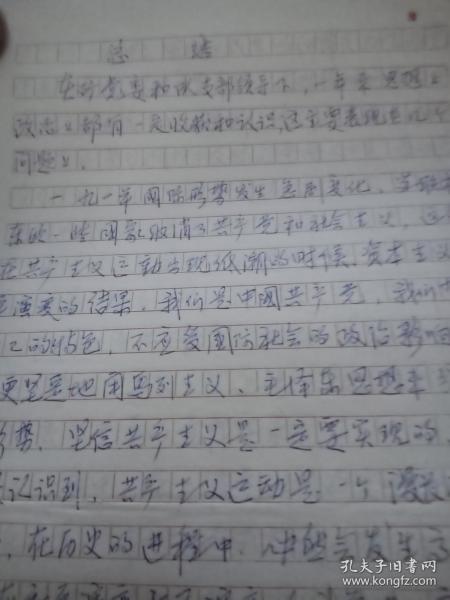 总结
在厂党委和本支部领导下,一年来思想上
政治上都有一定收获和认识,这主要表现在几个
问题上.
一九九一年国际形势发生急剧变化,
东欧一些国家取消了共产党和社会主义,这
在共产主义运动出现低潮的时候,资本主义
演变的结果,我们是中国共产党,我们
己的特色,不应受国际社会的政治影响
更坚定地用马列主义、毛泽东思想来
势,坚信共产主义是一定要实现的,
认识到,共产主义运动是一个漫长
,在历史的进程中,
孔夫子旧书网
www.kongfz.com